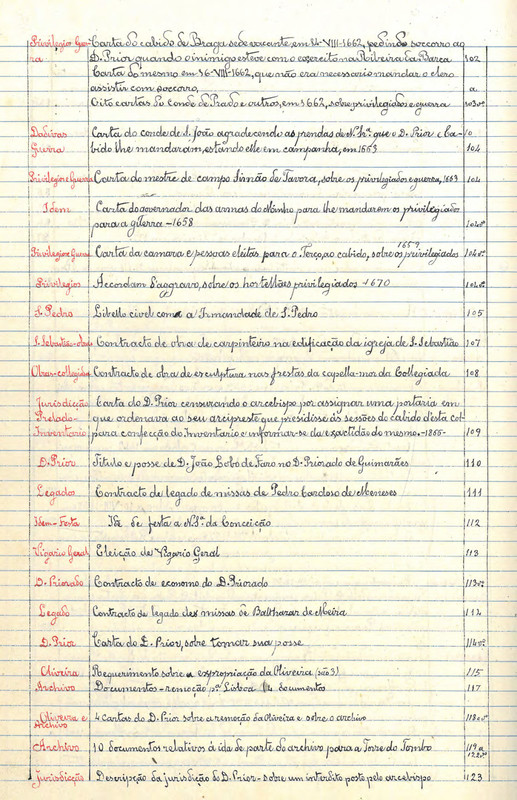 Privilegios Guer- Carta do cabido de Braga sede vacante em 24-VIII-1662, pedindo soccorro ao
ra D. Prior quando o inimigo esteve com o exercito na Ribeira da Barca 102
Carta do mesmo em 26-VIII-1662, que não era necessario mandar o clero
assistir com soccorro, a
Oito cartas do conde de Prado e outros, em 1662, sobre privilegiados e guerra 103vº
Dadivas Carta do conde de S. João agradecendo as prendas de N. Srª. que o D. Prior e ca-
Guerra bido lhe mandaram, estando elle em campanha, em 1663 104
Privilegio e Guerra Carta do mestre de campo Simão de Tavora, sobre os privilegiados e guerra, 1663 104
Idem Carta do governador das armas do Minho para lhe mandarem os privilegiados
para a guerra - 1658 104vº
Privilegio e Guerra Carta da camara e pessoas eleitas para o Terço ao cabido, sobre os privilegiados 1659 104vº
Privilegios Accordam d'aggravo, sobre os hortellães privilegiados - 1670 104vº
S. Pedro Libello civel com a Irmandade de S. Pedro 105
S. Sebastião-obras Contracto de obra de carpinteiro na edificação da igreja de S. Sebastião 107
Obras-collegiada Contracto de obra de esculptura nas frestas da capella-mor da Collegiada 108
Jurisdicção Carta do D. Prior censurando o arcebispo por assignar uma portaria em
Prelado- que ordenava ao seu arcipreste que presidisse às sessões do cabido d'esta col.
Inventario para confecção do Inventario e informar-se da exactidão do mesmo. - 1855- 109
D. Prior Titulo e posse de D. João Lobo de Faro no D. Priorado de Guimarães 110
Legados Contracto de legado de missas de Pedro Cardoso de Meneses 111
Idem-Festa Id. de festa a N. Srª. da Conceição 112
Vigario Geral Eleição de Vigario Geral 113
D. Priorado Contracto de economo do D. Priorado 113vº
Legado Contracto de legado de missas de Balthazar de Meira 114
D. Prior Carta do D. Prior, sobre tomar sua posse 114vº
Oliveira Requerimento sobre a expropriação da Oliveira (são 3) 115
Archivo Documentos - remoção pª. Lisboa (4 documentos 117
Oliveira e 4 Cartas do D. Prior sobre a remoção da Oliveira e sobre o archivo 118 e vº
Archivo
Archivo 10 documentos relativos á ida de parte do archivo para a Torre do Tombo 119 a
122vº
Jurisdicção Descripção da jurisdicção do D. Prior - sobre um interdito posto pelo arcebispo 123